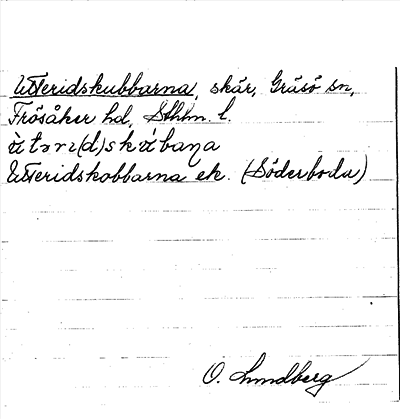 Utteridskubbarna, skär, Gräsö sn,
Frösåker hd, Sthlm. l.
ùtərı(d)skúbaɳa
Utteridskobbarna ek. (Söderboda)
O. Lundberg